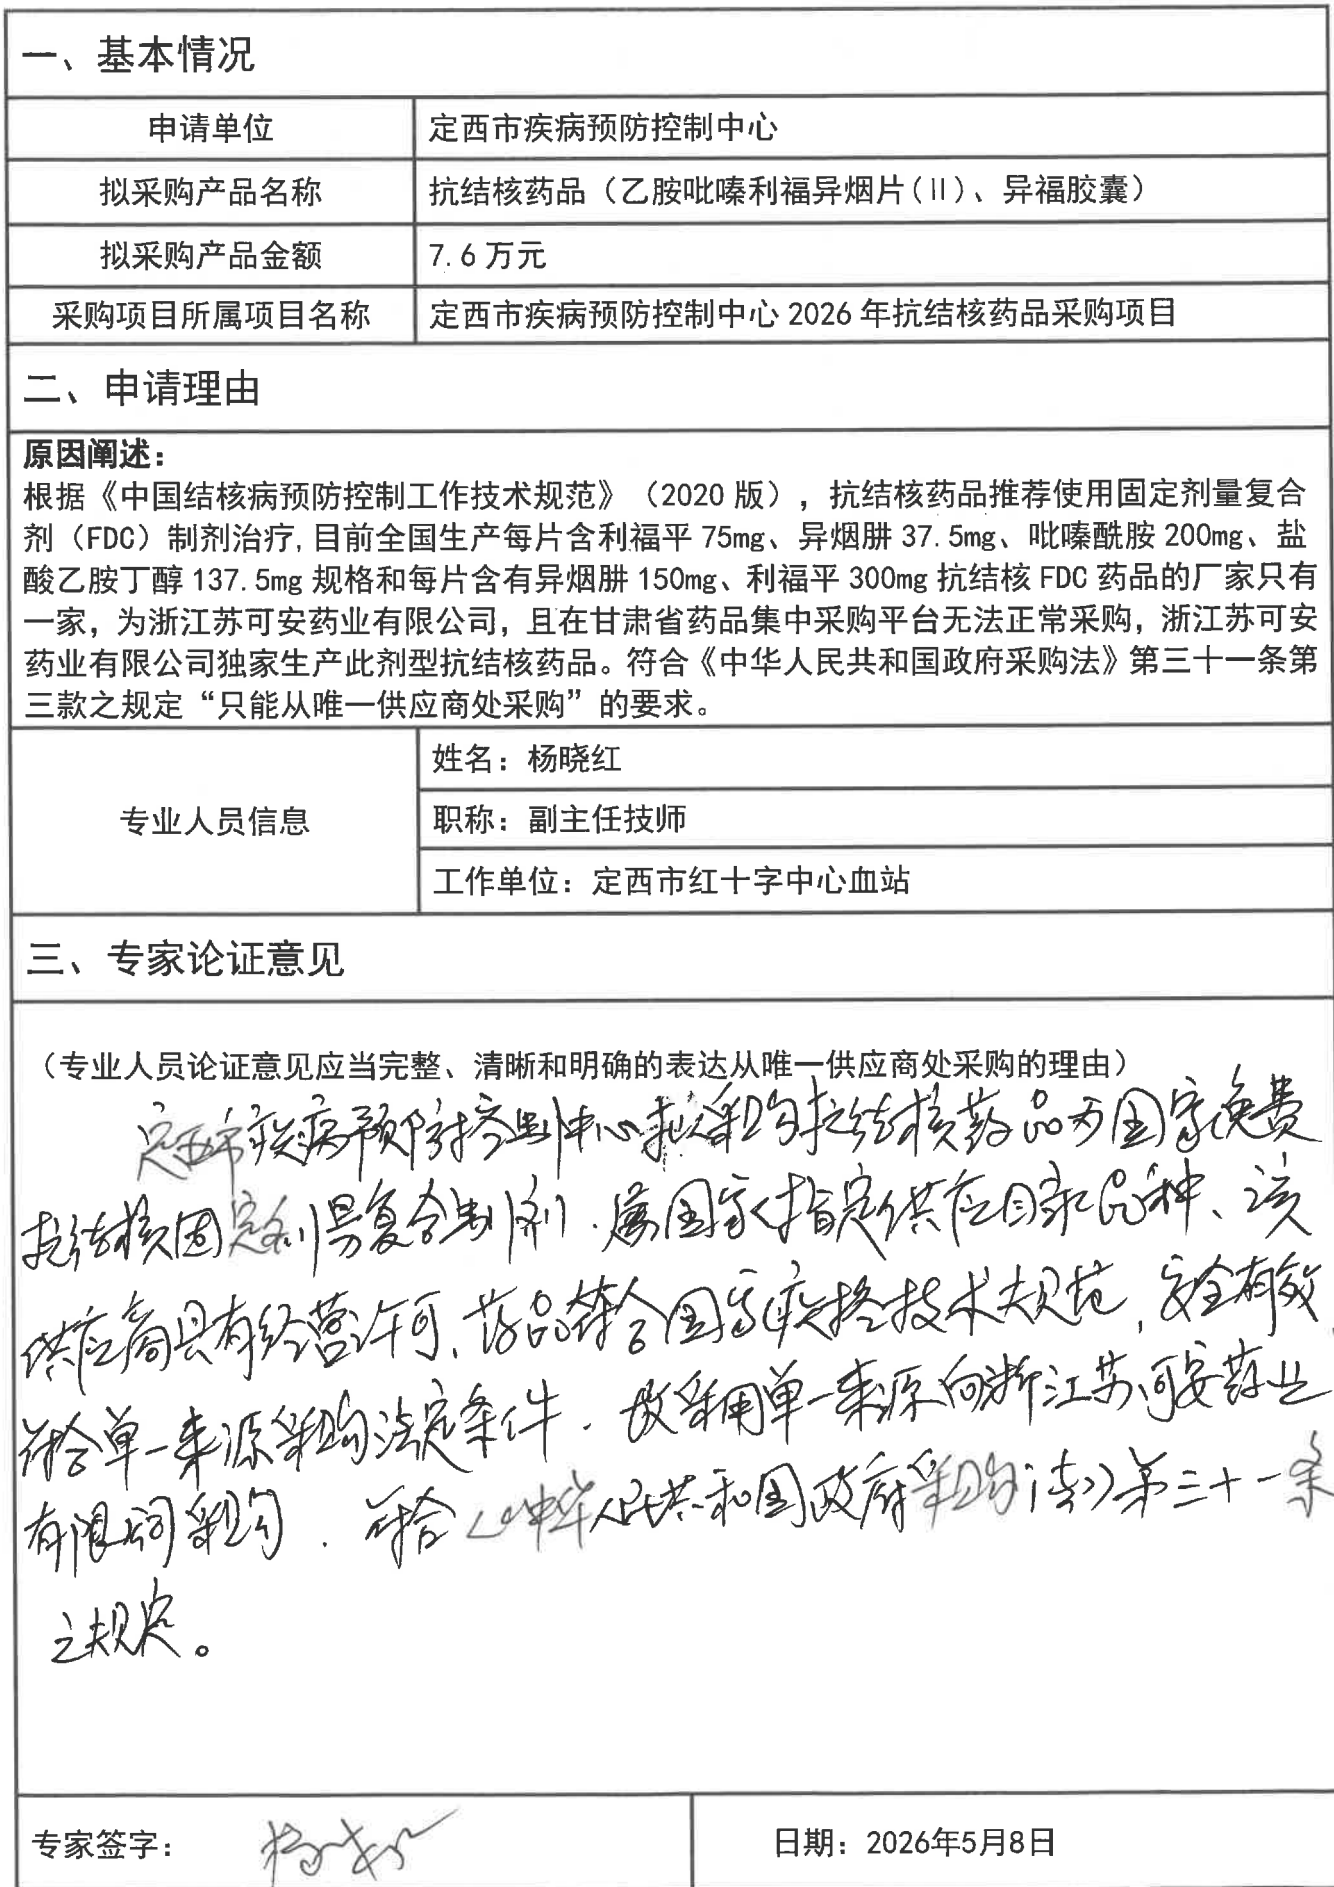 一、基本情况
申请单位 定西市疾病预防控制中心
拟采购产品名称 抗结核药品（乙胺吡嗪利福异烟片(II)、异福胶囊）
拟采购产品金额 7.6万元
采购项目所属项目名称 定西市疾病预防控制中心2026年抗结核药品采购项目
二、申请理由
原因阐述：
根据《中国结核病预防控制工作技术规范》（2020版），抗结核药品推荐使用固定剂量复合
剂（FDC）制剂治疗,目前全国生产每片含利福平75mg、异烟肼37.5mg、吡嗪酰胺200mg、盐
酸乙胺丁醇137.5mg规格和每片含有异烟肼150mg、利福平300mg抗结核FDC药品的厂家只有
一家，为浙江苏可安药业有限公司，且在甘肃省药品集中采购平台无法正常采购，浙江苏可安
药业有限公司独家生产此剂型抗结核药品。符合《中华人民共和国政府采购法》第三十一条第
三款之规定“只能从唯一供应商处采购”的要求。
专业人员信息
姓名：杨晓红
职称：副主任技师
工作单位：定西市红十字中心血站
三、专家论证意见
（专业人员论证意见应当完整、清晰和明确的表达从唯一供应商处采购的理由）
定西市疾病预防控制中心拟采购抗结核药品为国家免费
抗结核固定剂量复合制剂．属国家指定供应目录品种、该
供应商具有经营许可、药品符合国家疾控技术规范，安全有效，
符合单一来源采购法定条件．故采用单一来源向浙江苏可安药业
有限公司采购．符合《中华人民共和国政府采购法》第三十一条
之规定。
专家签字：
日期：2026年5月8日